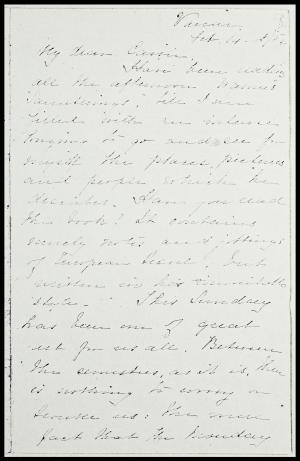 Vassar,
Feb. 14.
My dear Cousin,
Have been reading
all the afternoon "Warner's
Saunterings", till I am
filled with an intense
longing to go and see for
myself the places, pictures
and people which he
describes. Have you read
the book? It contains
merely notes and jottings
of European travel, but
written in his inimitable
style. This Sunday
has been one of great
rest for us all. Between
the semesters, as it is, there
is nothing to worry or
trouble us; the mere
fact that the Monday